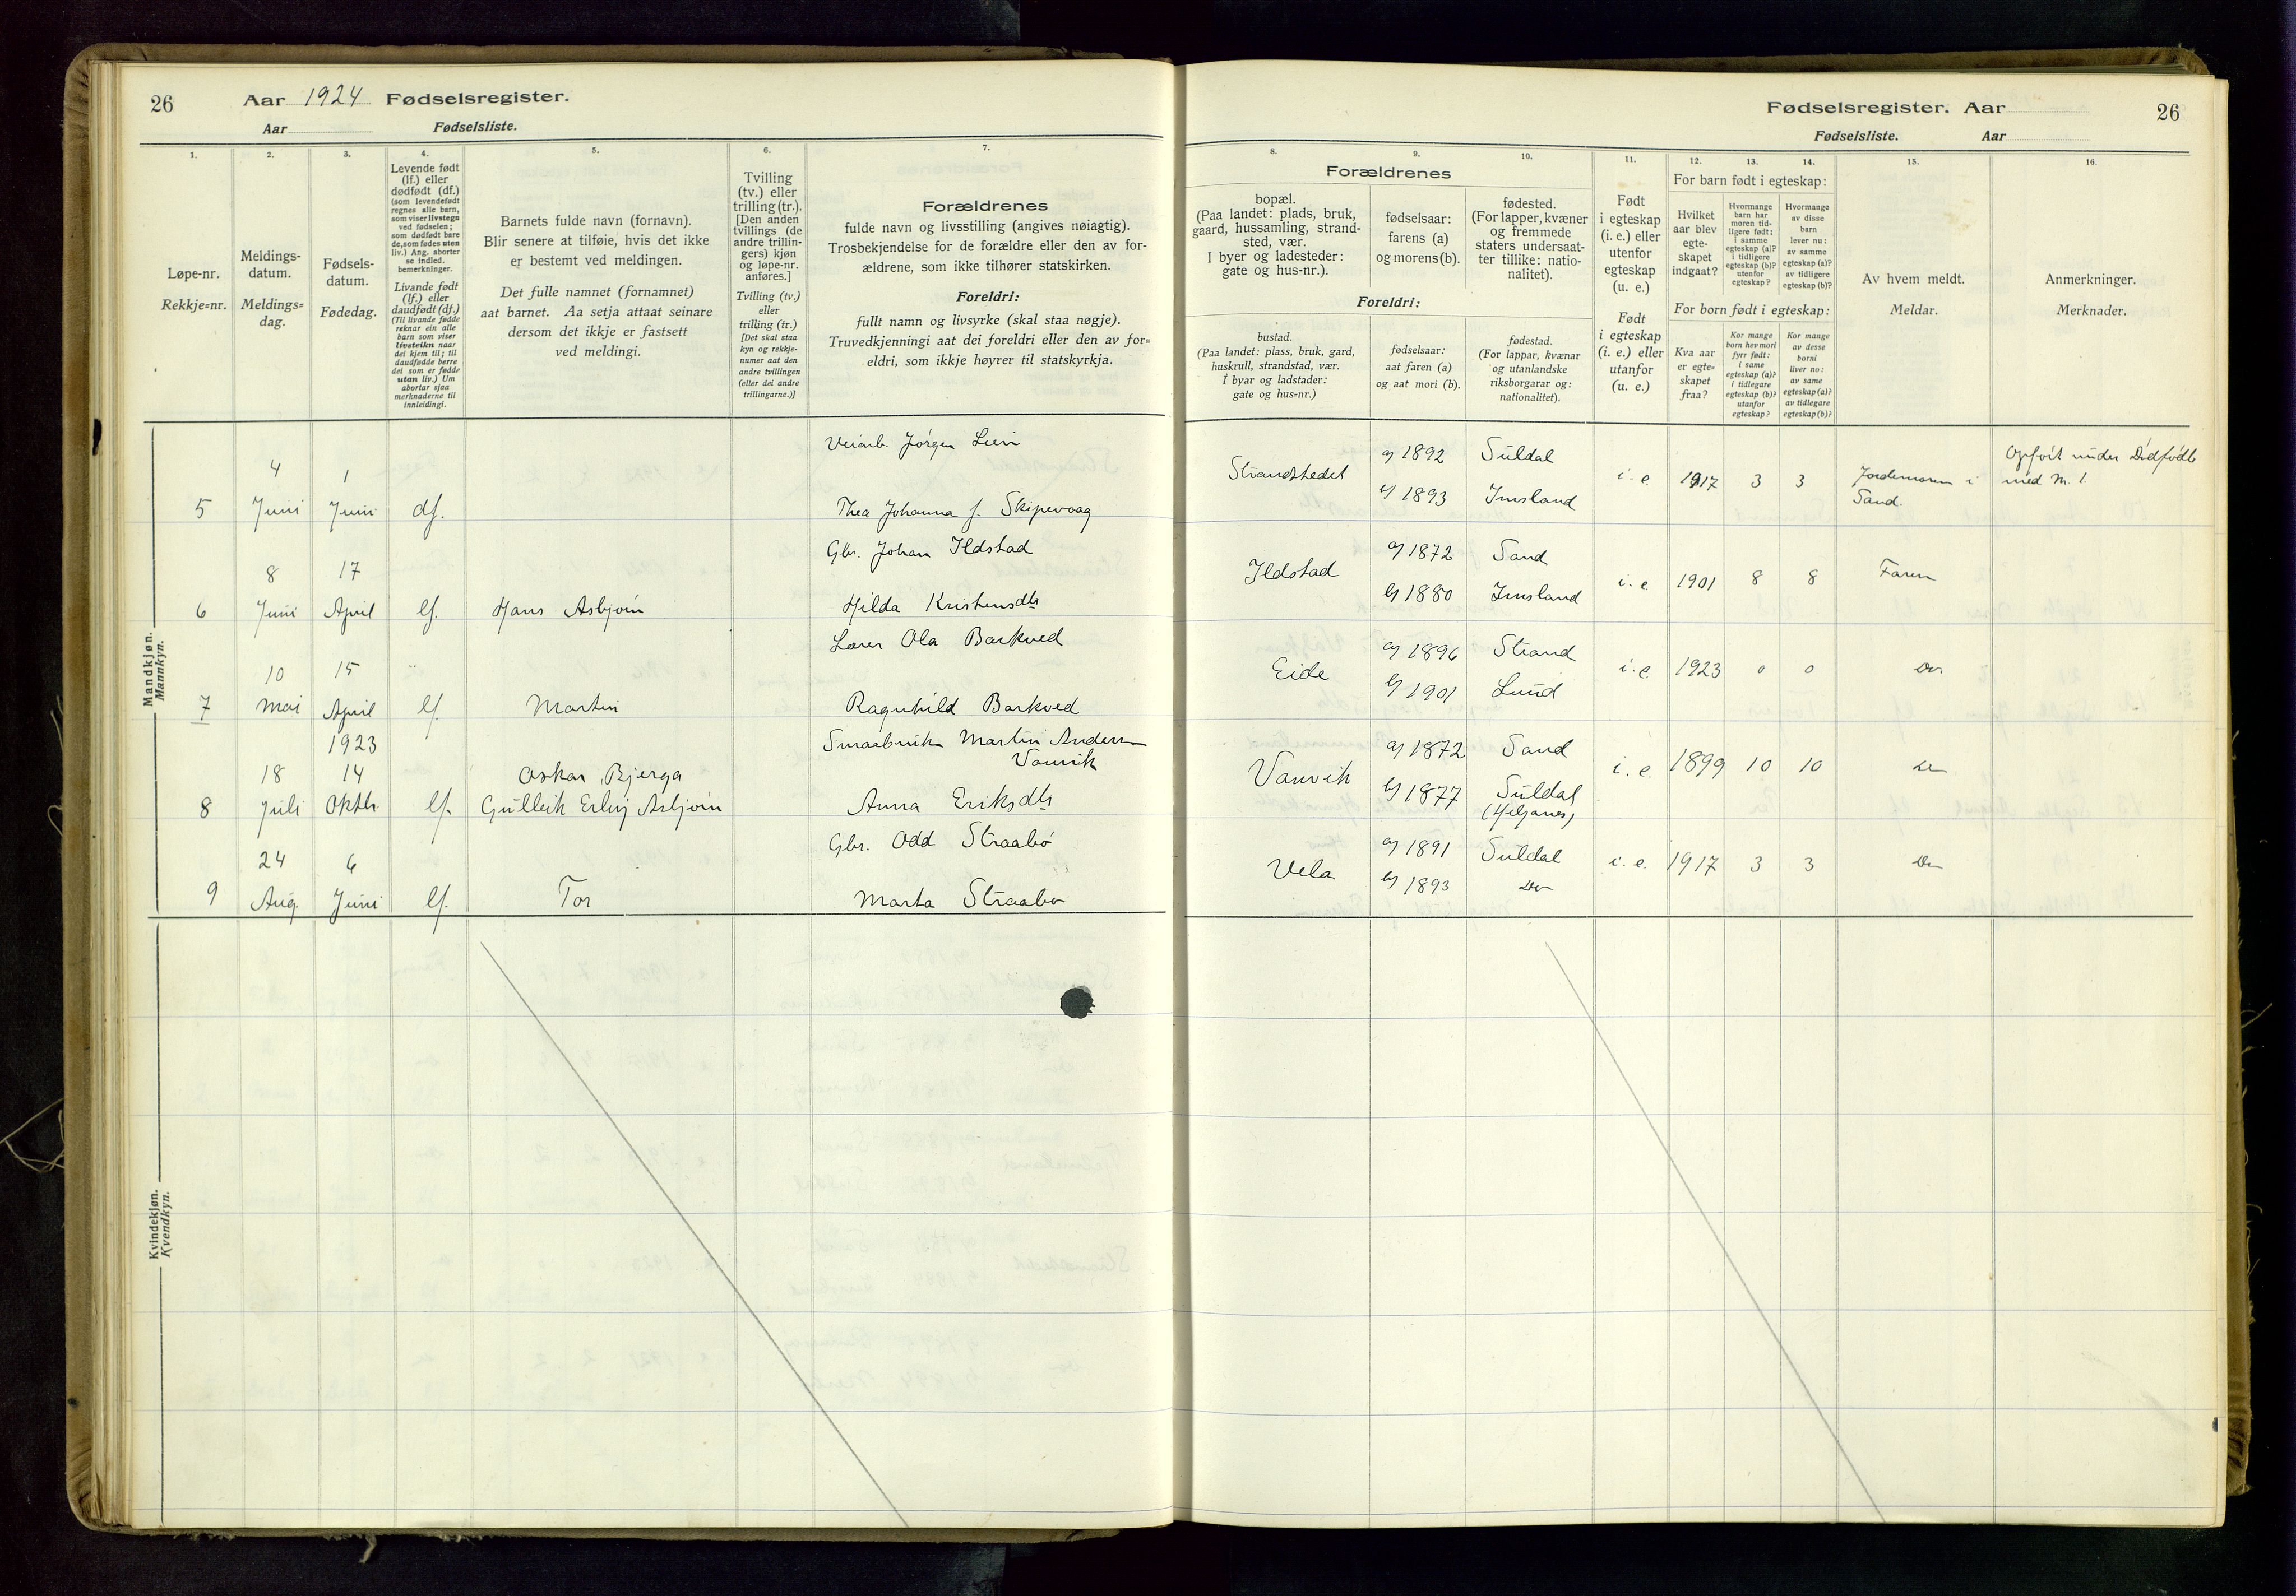 26
Aar 1924 Fødselsregister.
Aar Fødselsliste.
1.
Løpe-nr.
Rekkje-nr.
2.
Meldings-
datum.
Meldings=
dag.
3.
Fødsels-
datum.
Fødedag.
4.
Levende født
(lf.) eller
dødfødt (df.)
(som levendefødt
regnes alle barn,
som viser livstegn
ved fødselen;
som dødfødt bare
de, som fødes uten
liv.) Ang. aborter
se indled.
bemerkninger.
Livande født
(lf.) eller
daudfødt (df.)
(Til livande fødde
reknar ein alle
barn som viser
livsteikn naar
dei kjem til; til
daudfødde berre
dei som er fødde
utan liv.) Um
abortar sjaa
merknaderne til
innleidingi.
5.
Barnets fulde navn (fornavn).
Blir senere at tilføie, hvis det ikke
er bestemt ved meldingen.
Det fulle namnet (fornamnet)
aat barnet. Aa setja attaat seinare
dersom det ikkje er fastsett
ved meldingi.
6.
Tvilling
(tv.) eller
trilling (tr.).
[Den anden
tvillings (de
andre trillin-
gers) kjøn
og løpe-nr.
anføres.]
Tvilling (tv.)
eller
trilling (tr.)
[Det skal staa
kyn og rekkje-
numer aat den
andre tvillingen
(eller dei andre
trillingarne.)]
7.
Forældrenes
fulde navn og livsstilling (angives nøiagtig).
Trosbekjendelse for de forældre eller den av for-
ældrene, som ikke tilhører statskirken.
Foreldri:
fullt namn og livsyrke (skal staa nøgje).
Truvedkjenningi aat dei foreldri eller den av for=
eldri, som ikkje høyrer til statskyrkja.
Mandkjøn.
Mannkyn.
Veiarb. Jørgen Lein
4 1
5 Juni Juni df. Thea Johanna f. Skipevaag
Gbr. Johan Ildstad
8 17
6 Juni April lf. Hans Asbjørn Hilda Kristensdtr
Lærer Ola Barkved
10 15
7 Mai April lf. Martin Ragnhild Barkved
1923 Smaabruk Martin Andersen
Vanvik
18 14 Oskar Bjerga
8 Juli Oktbr. lf. Gulleik Erling Asbjørn Anna Eriksdtr
Gbr. Odd Straabø
24 6
9 Aug. Juni lf. Tor Marta Straabø
Kvindekjøn.
Kvendkyn.
Fødselsregister. Aar 26
Fødselsliste. Aar
8.
Forældrenes
bopæl.
(Paa landet: plads, bruk,
gaard, hussamling, strand-
sted, vær.
I byer og ladesteder:
gate og hus-nr.).
9.
fødselsaar:
farens (a)
og morens (b).
10.
fødested.
(For lapper, kvæner
og fremmede
staters undersaat-
ter tillike: natio-
nalitet).
Foreldri:
bustad.
(Paa landet: plass, bruk, gard,
huskrull, strandstad, vær.
I byar og ladstader:
gate og hus=nr.)
fødselsaar:
aat faren (a)
og aat mori (b).
fødestad.
(For lappar, kvænar
og utanlandske
riksborgarar og:
nationalitet).
11.
Født
i egteskap
(i. e.) eller
utenfor
egteskap
(u. e.)
Født
i egteskap
(i. e.) eller
utanfor
(u. e.)
12. 13. 14.
For barn født i egteskap:
Hvilket
aar blev
egte-
skapet
indgaat?
Hvormange
barn har
moren tid-
ligere født:
i samme
egteskap (a)?
i tidligere
egteskap (b)?
utenfor
egteskap?
Hvormange
av disse
barn
lever nu:
av samme
egteskap (a)?
av tidligere
egteskap (b)?
For born født i egteskap:
Kva aar
er egte=
skapet
fraa?
Kor mange
born hev mori
fyrr født:
i same
egteskap (a)?
i tidlegare
egteskap (b)?
utanfor
egteskap?
Kor mange
av desse
borni
liver no:
av same
egteskap (a)?
av tidlegare
egteskap (b)?
15.
Av hvem meldt.
Meldar.
16.
Anmerkninger.
Merknader.
a) 1892 Suldal Opført under Dødfødte
Strandstedet i. e. 1917 3 3 Jordmoren i med nr. 1.
b) 1893 Imsland Sand.
a) 1872 Sand
Ildstad i. e. 1901 8 8 Faren
b) 1880 Imsland
a) 1896 Strand
Eide i. e. 1923 0 0 Do
b) 1901 Lund
a) 1872 Sand
Vanvik i. e. 1899 10 10 Do
b) 1877 Suldal
(Hiljanes)
a) 1891 Suldal
Vela i. e. 1917 3 3 Do
b) 1893 Do